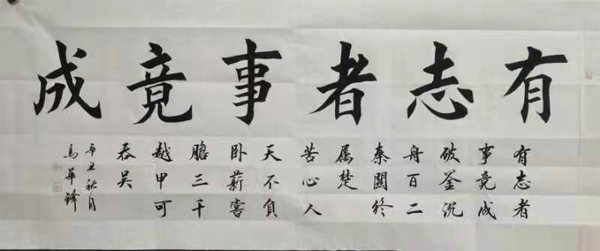 有志者事竟成
有志者
事竟成
破釜沉
舟百二
秦關終
属楚
苦心人
天不負
卧薪嘗
膽三千
越甲可
吞吴
辛丑秋月
馬華鋒